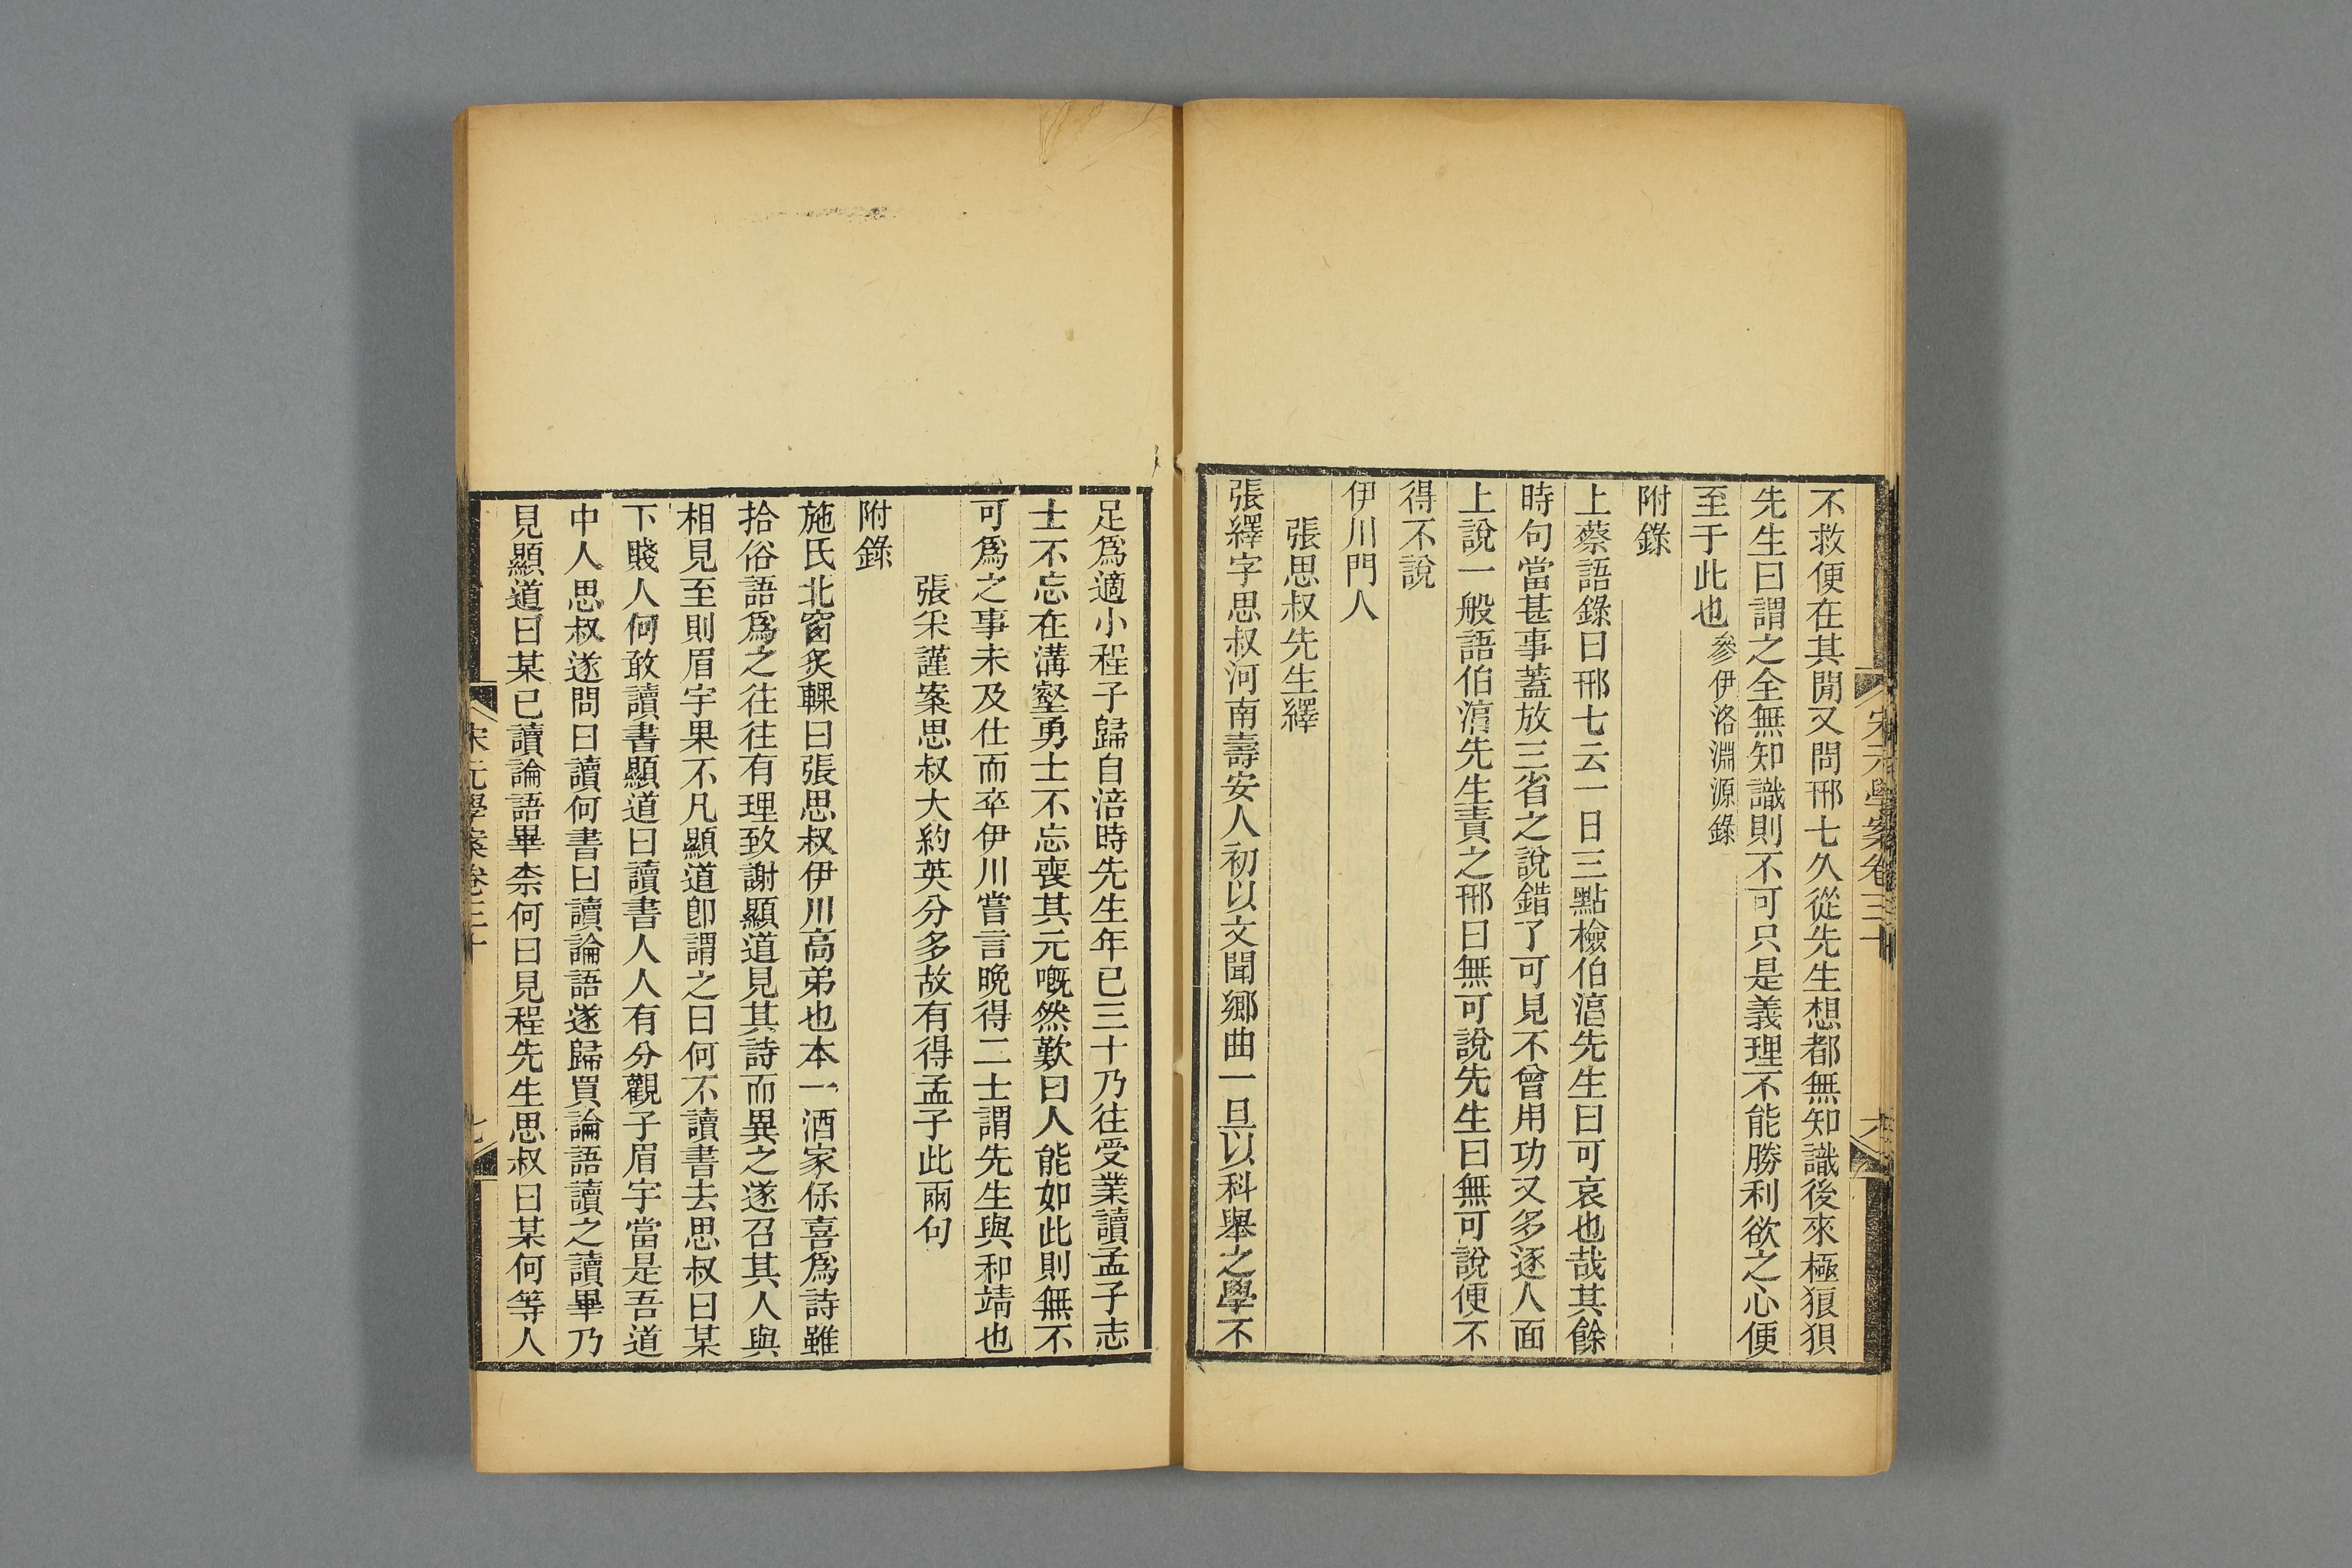 宋元學案卷三十
六
不救便在其閒又問邢七久從先生想都無知識後來極狼狽
先生曰謂之全無知識則不可只是義理不能勝利欲之心便
至于此也參伊洛淵源錄
附錄
上蔡語錄曰邢七云一日三點檢伯淳先生曰可哀也哉其餘
時句當甚事蓋放三省之說錯了可見不曾用功又多逐人面
上說一般語伯淳先生責之邢曰無可說先生曰無可說便不
得不說
伊川門人
張思叔先生繹
張繹字思叔河南壽安人初以文聞鄉曲一旦以科舉之學不
足爲適小程子歸自涪時先生年已三十乃往受業讀孟子志
士不忘在溝壑勇士不忘喪其元嘅然歎曰人能如此則無不
可爲之事未及仕而卒伊川嘗言晩得二士謂先生與和靖也
張采謹案思叔大約英分多故有得孟子此兩句
附錄
施氏北窗炙輠曰張思叔伊川高弟也本一酒家保喜爲詩雖
拾俗語爲之往往有理致謝顯道見其詩而異之遂召其人與
相見至則眉宇果不凡顯道卽謂之曰何不讀書去思叔曰某
下賤人何敢讀書顯道曰讀書人人有分觀子眉宇當是吾道
中人思叔遂問曰讀何書曰讀論語遂歸買論語讀之讀畢乃
見顯道曰某已讀論語畢柰何曰見程先生思叔曰某何等人
宋元學案卷三十
七